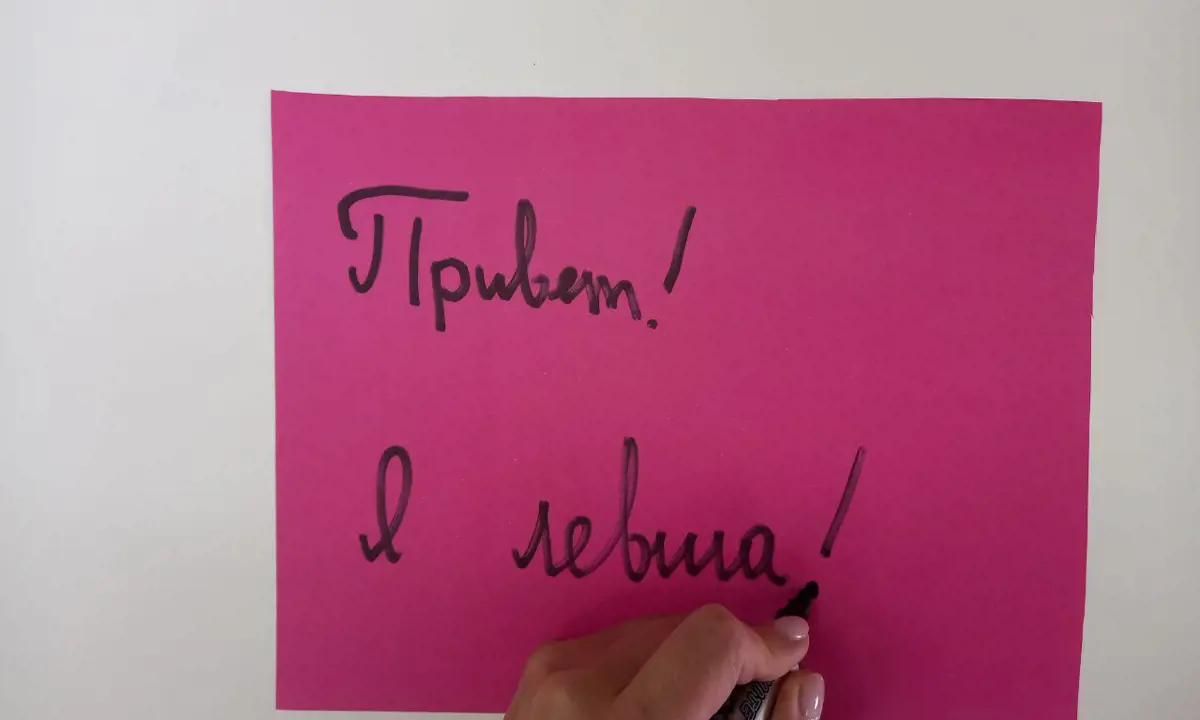 Привет!
Я левша!